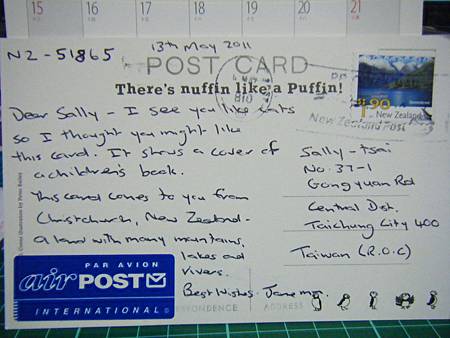 15 16 17 18 19 20 21
NZ-51865
13th May 2011
POST CARD
There's nuffin like a Puffin!
1.90
New Zealand
New Zealand Post
Dear Sally - I see you like cats
so I thought you might like
this card. It shows a cover of
a children's book.
This card comes to you from
Christchurch, New Zealand -
a land with many mountains,
lakes and
rivers.
Best Wishes. Jane
Sally-Tsai
No. 37-1
Gongyuan Rd
Central Dist.
Taichung City 400
Taiwan (R.O.C)
PAR AVION
air POST
INTERNATIONAL
CORRESPONDENCE
ADDRESS
Cover illustration by Peter Bailey